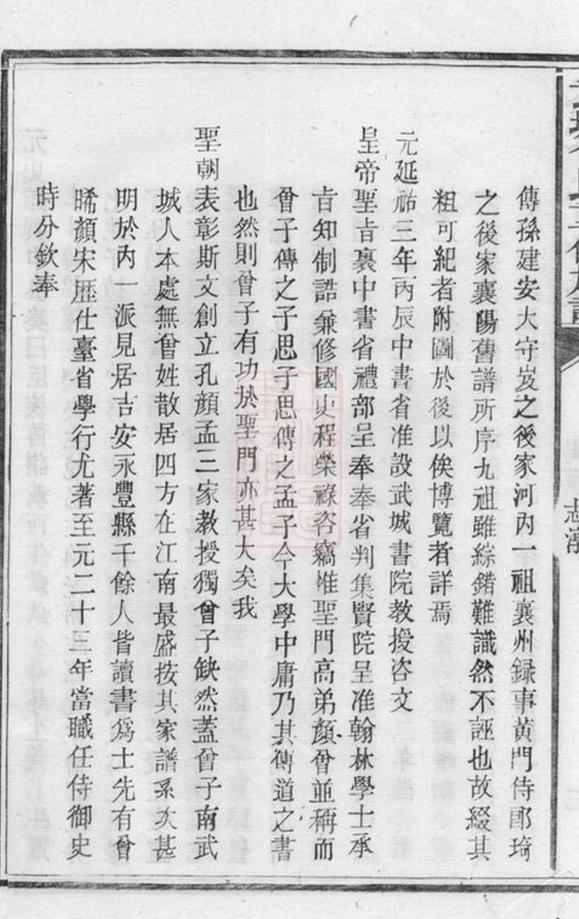 志源
傳孫建安大守岌之後家河內一祖襄州録事黃門侍郎琦
之後家襄陽舊譜所序九祖雖綜錯難識然不誣也故綴其
粗可紀者附圖於後以俟博覽者詳焉
元延祐三年丙辰中書省准設武城書院教授咨文
皇帝聖旨裏中書省禮部呈奉奉省判集賢院呈准翰林學士承
旨知制誥兼修國史程榮祿咨竊惟聖門高弟顏曾並稱而
曾子傳之子思子思傳之孟子今大學中庸乃其傳道之書
也然則曾子有功於聖門亦甚大矣我
聖朝表彰斯文創立孔顏孟三家教授獨曾子缺然蓋曾子南武
城人本處無曾姓散居四方在江南最盛按其家譜系次甚
明於內一派見居吉安永豐縣千餘人皆讀書爲士先有曾
晞顏宋歷仕臺省學行尤著至元二十三年當職任侍御史
時分欽奉